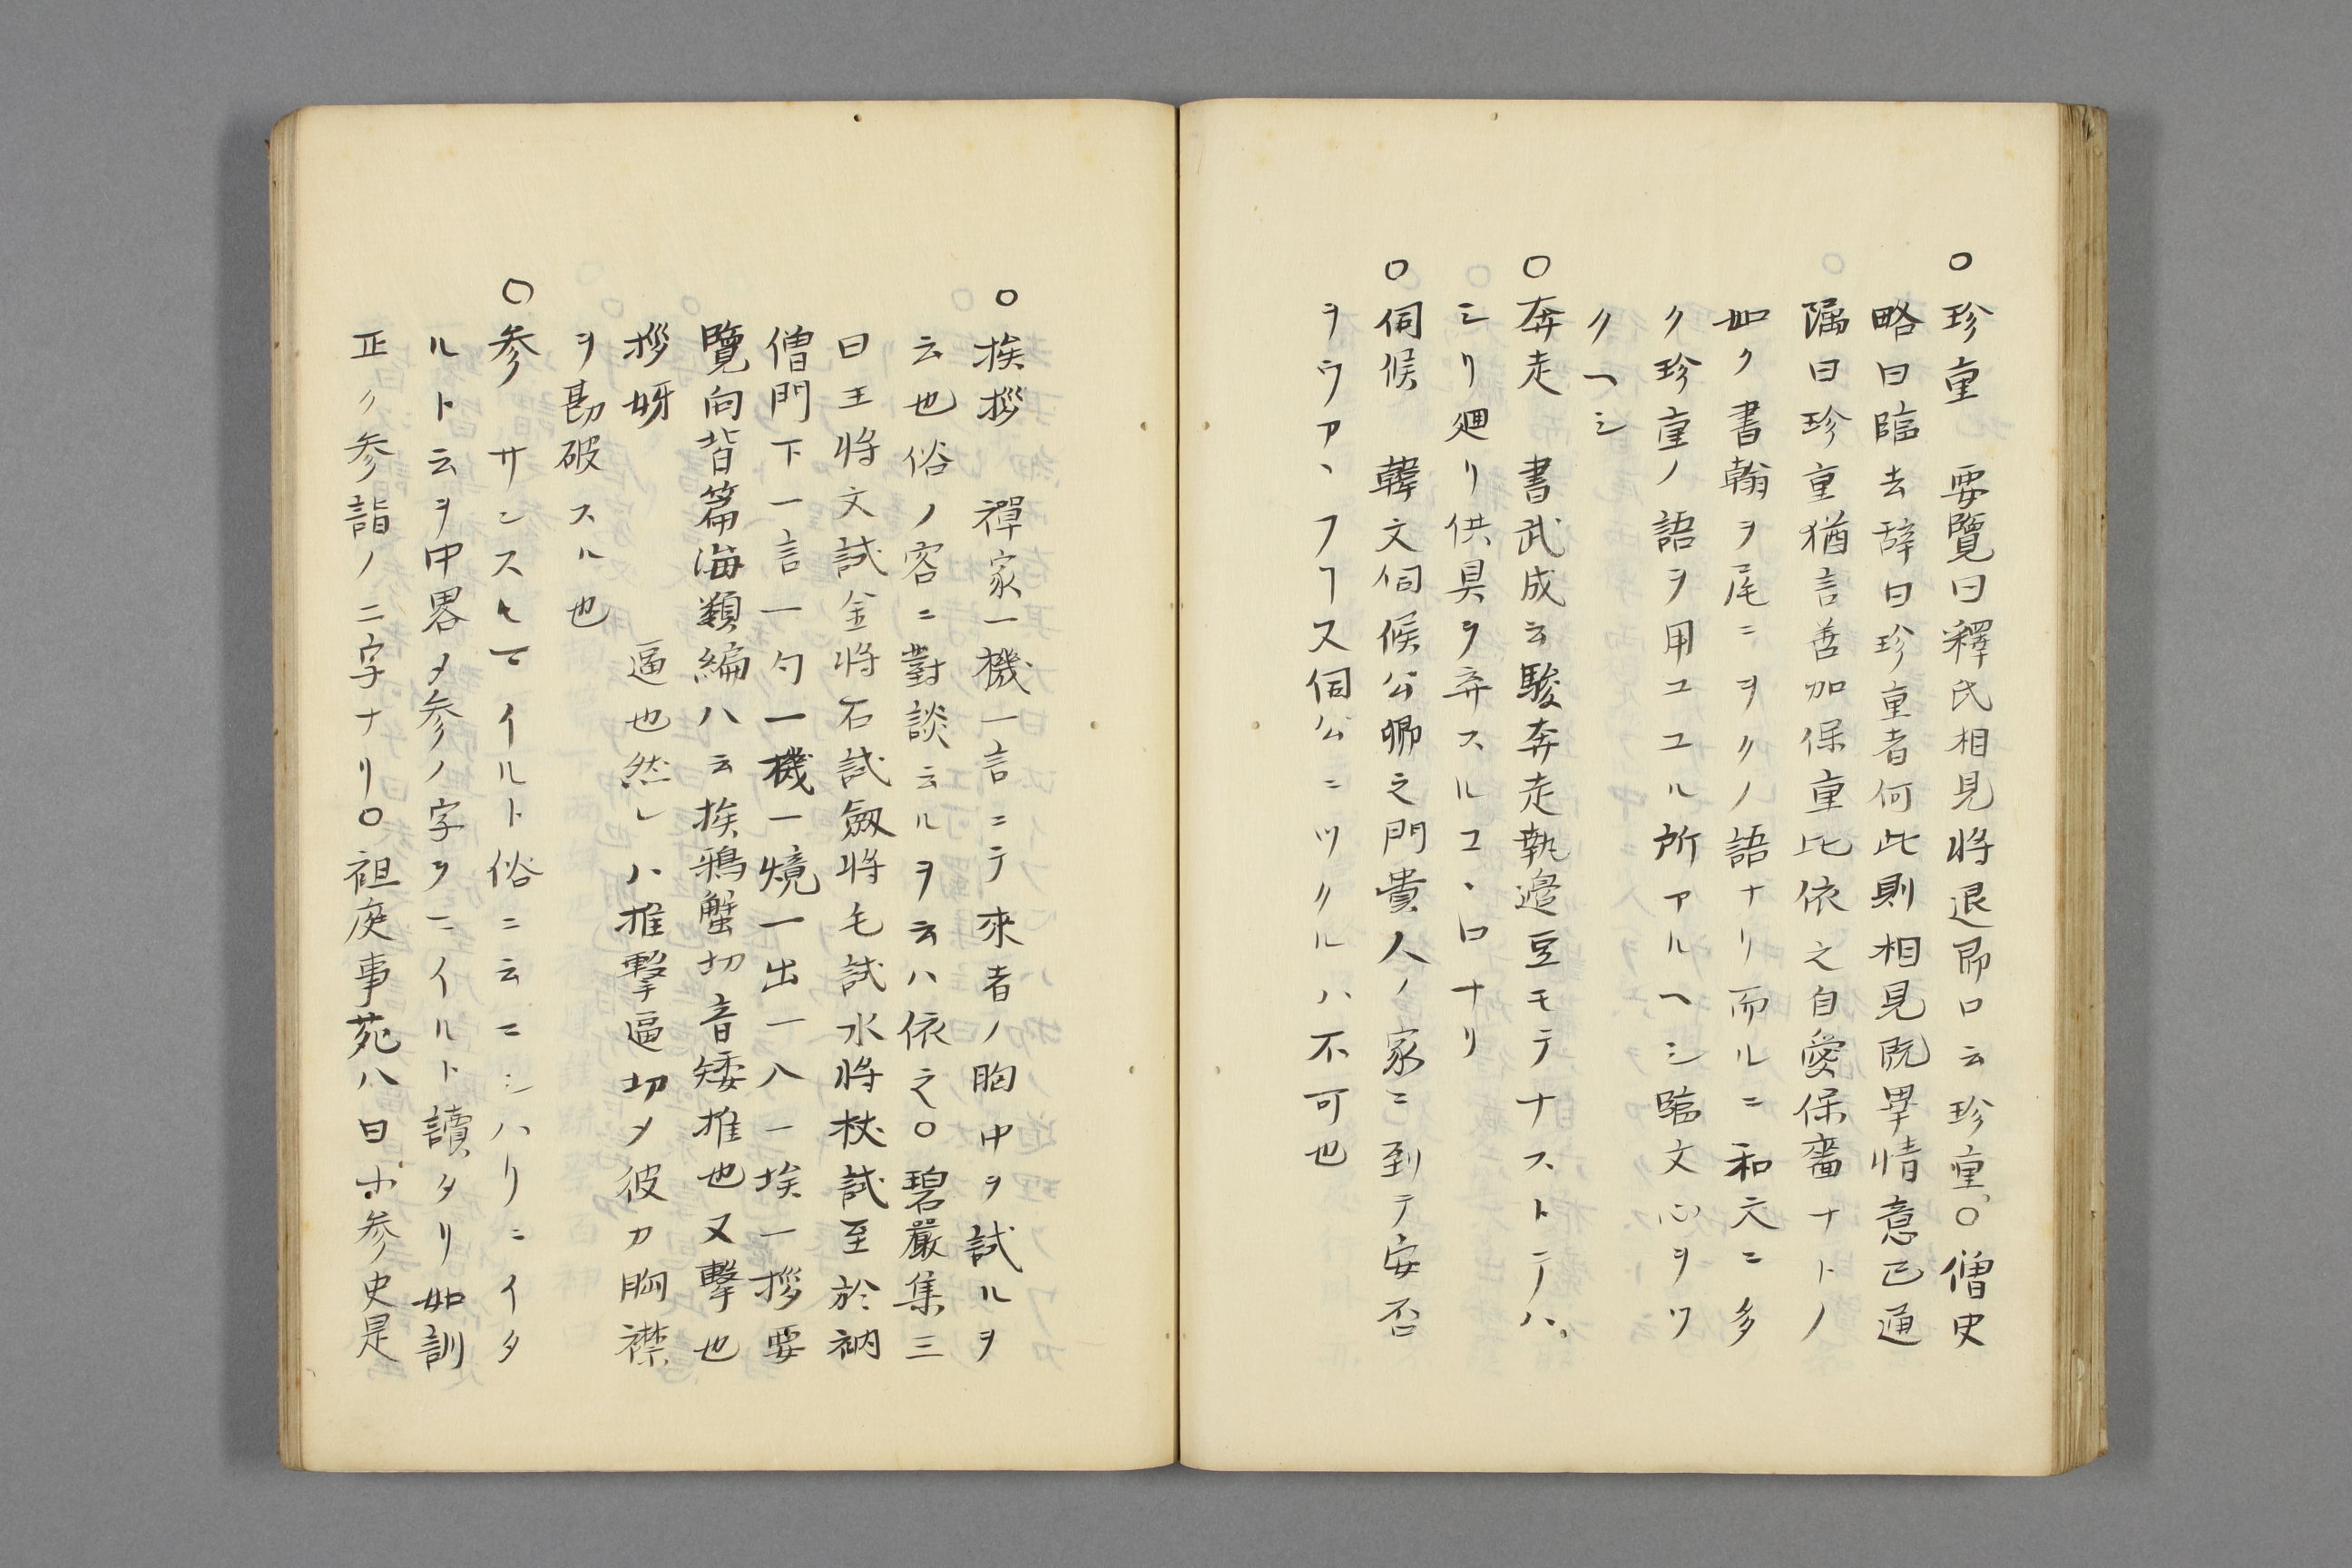 ○珍重　要覽曰釋氏相見將退即口云珍重○僧史
略曰臨去辞曰珍重者何此則相見既畢情意已通
囑曰珍重猶言善加保重比依之自愛保嗇ナトノ
如ク書翰ヲ尾ニヲクノ語ナリ而ルニ和文ニ多
ク珍重ノ語ヲ用ユユル所アルヘシ臨文心ヲツ
クヘシ
○奔走　書武成云駿奔走執邉豆モテナストテハ
シリ廻リ供具ヲ弃スルコヽロナリ
○伺候　韓文伺候公卿之門貴人ノ家ニ到テ安否
ヲウアヽフヿス伺公ニツクルハ不可也
○挨拶　禪家一機一言ニテ來者ノ胸中ヲ試ルヲ
云也俗ノ客ニ對談云ルヲ云ハ依之○碧嚴集三
曰玉將文試金將石試劔將毛試水將杖試至於衲
僧門下一言一勺一機一境一出一入一挨一拶要
覽向背篇海類編八云挨鴉蟹切音矮推也又擊也
拶　逼也然レハ推擊逼切メ彼カ胸襟
ヲ勘破スル也
○参　サンスヒテイルト俗ニ云ニシハリニイタ
ルト云ヲ中畧メ参ノ字ヲニイルト讀タリ如訓
正ク参詣ノ二字ナリ○祖庭事苑八曰小参史是